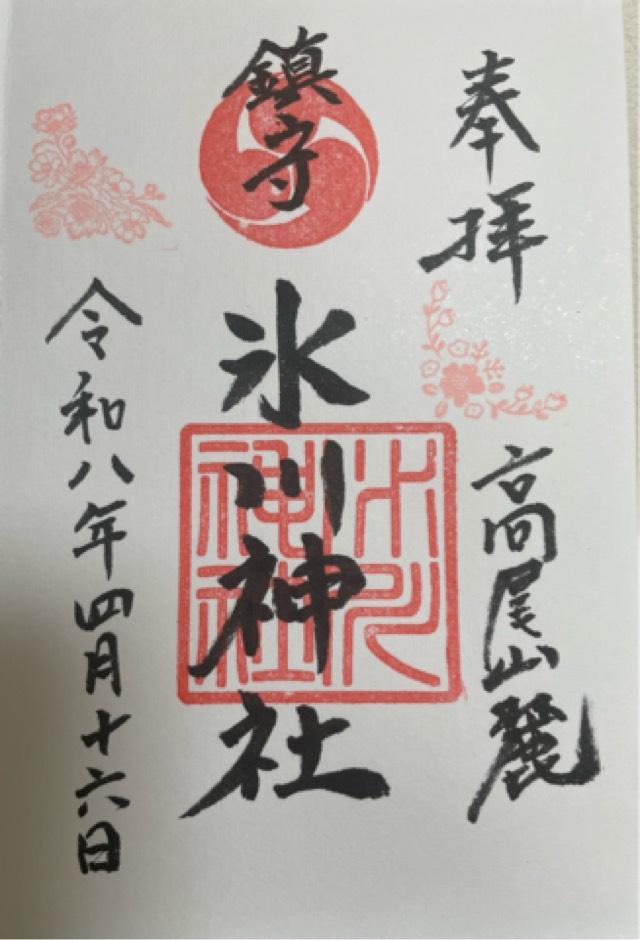 奉拝
高尾山麗
鎮守
氷川神社
氷川
神社
令和八年四月十六日